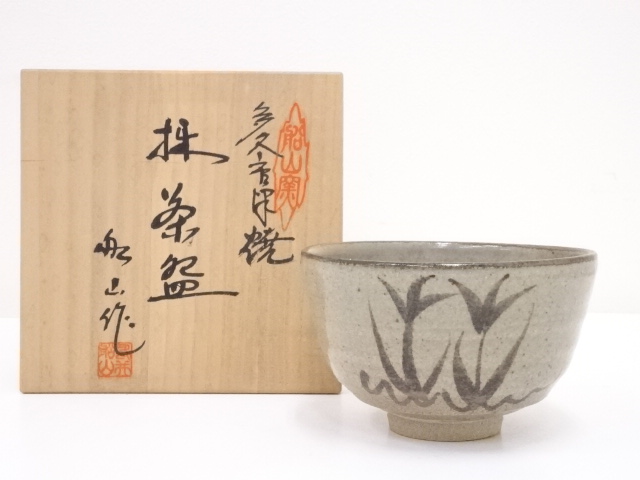 船山窯
多久焼
抹茶盌
船山作